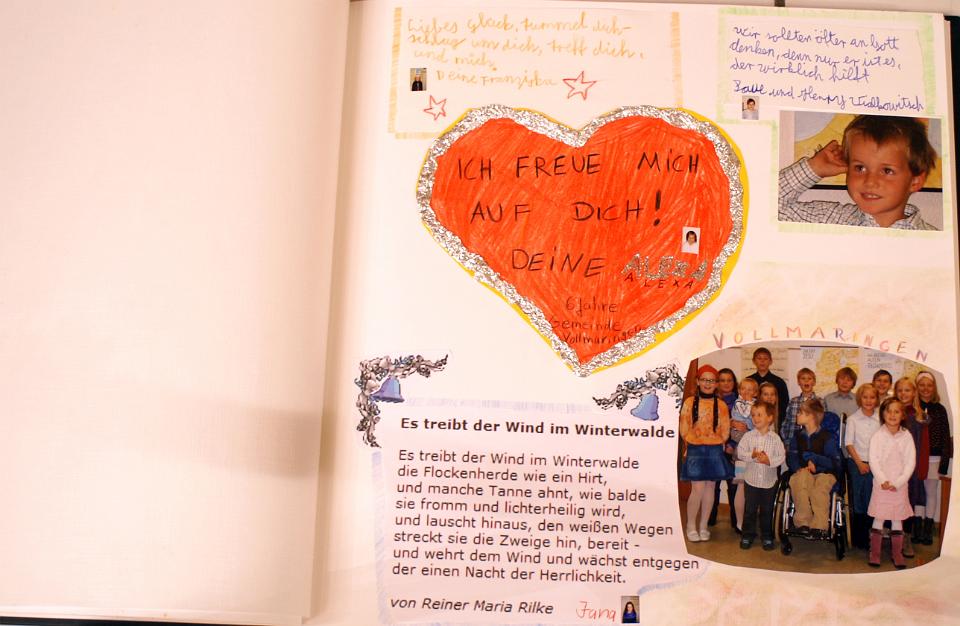 Liebes Glück, tummel dich-
schlag um dich, treff dich,
und mich,
Deine Franziska
wir sollten öfter an Gott
denken, denn nur er ist es,
der wirklich hilft
und Henry
ICH FREUE MICH
AUF DICH!
DEINE ALEXA
ALEXA
6 Jahre
Gemeinde
Vollmaringen
VOLLMARINGEN
Es treibt der Wind im Winterwalde
Es treibt der Wind im Winterwalde
die Flockenherde wie ein Hirt,
und manche Tanne ahnt, wie balde
sie fromm und lichterheilig wird,
und lauscht hinaus, den weißen Wegen
streckt sie die Zweige hin, bereit -
und wehrt dem Wind und wächst entgegen
der einen Nacht der Herrlichkeit.
von Reiner Maria Rilke Jana